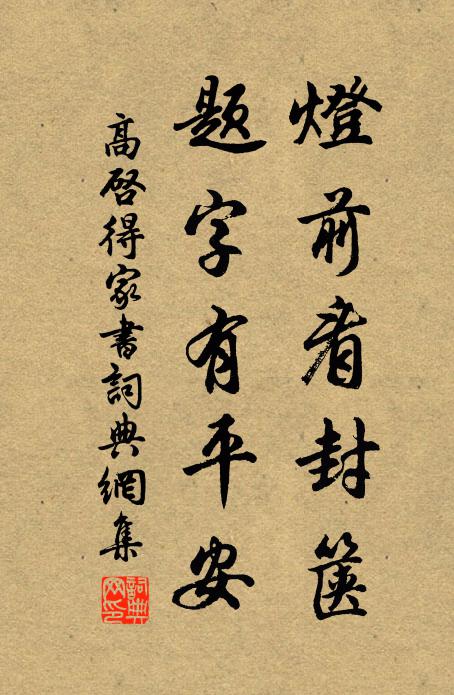 燈前看封篋
題字有平安
高啓得家書詞典網集
詞典網印